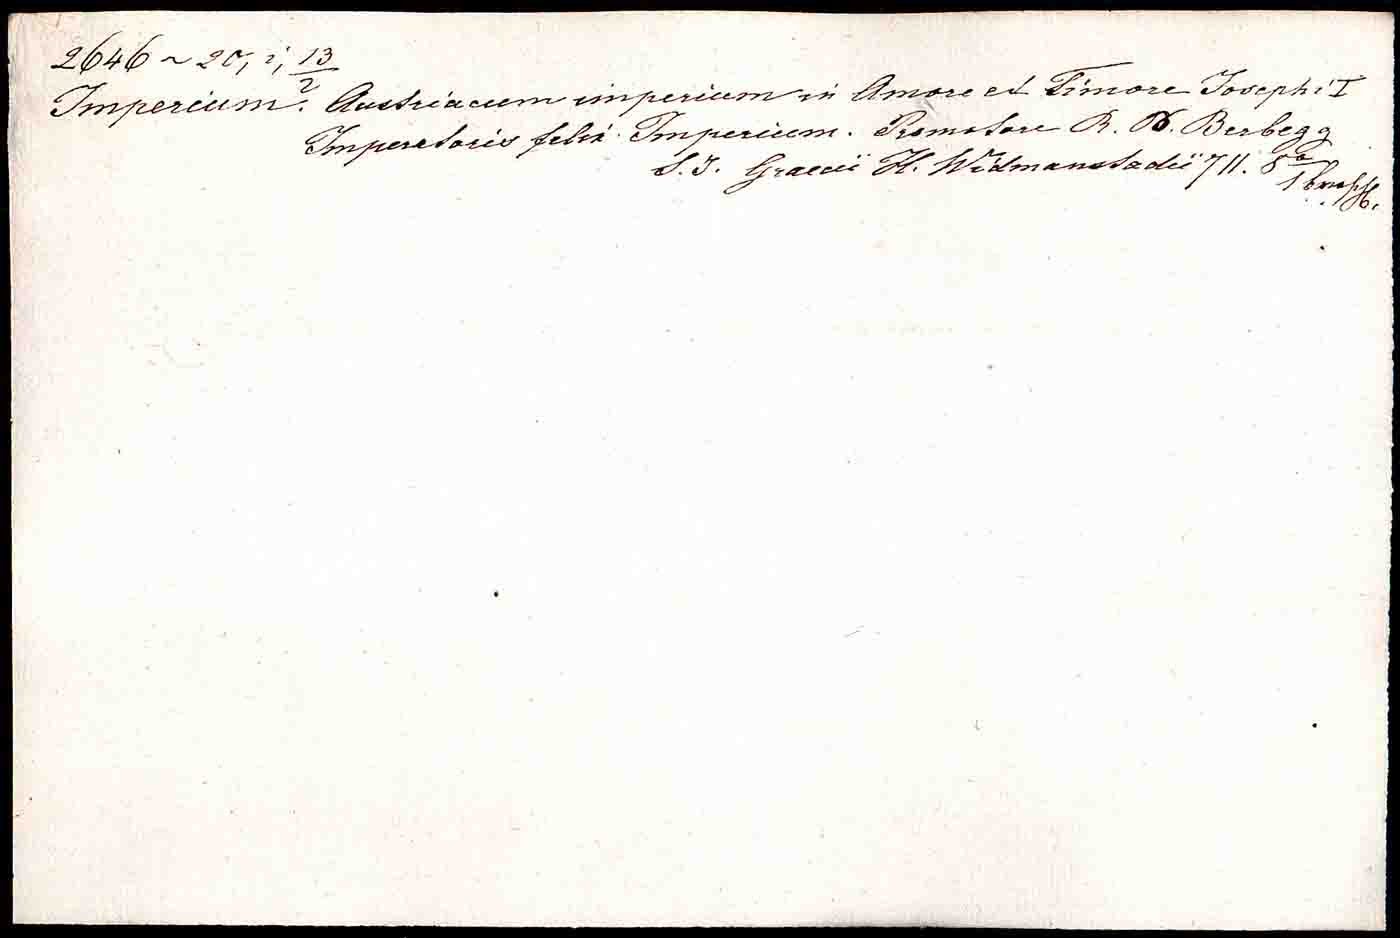 2646 ~ 20, i, 13/2
Imperium. Austriacum imperium in Amore et Timore Josephi I
Imperatoris felix Imperium. Promotore R. P. Berbegg
S. J. Graecii H. Widmanstadii 711. 8o
1 brosch.